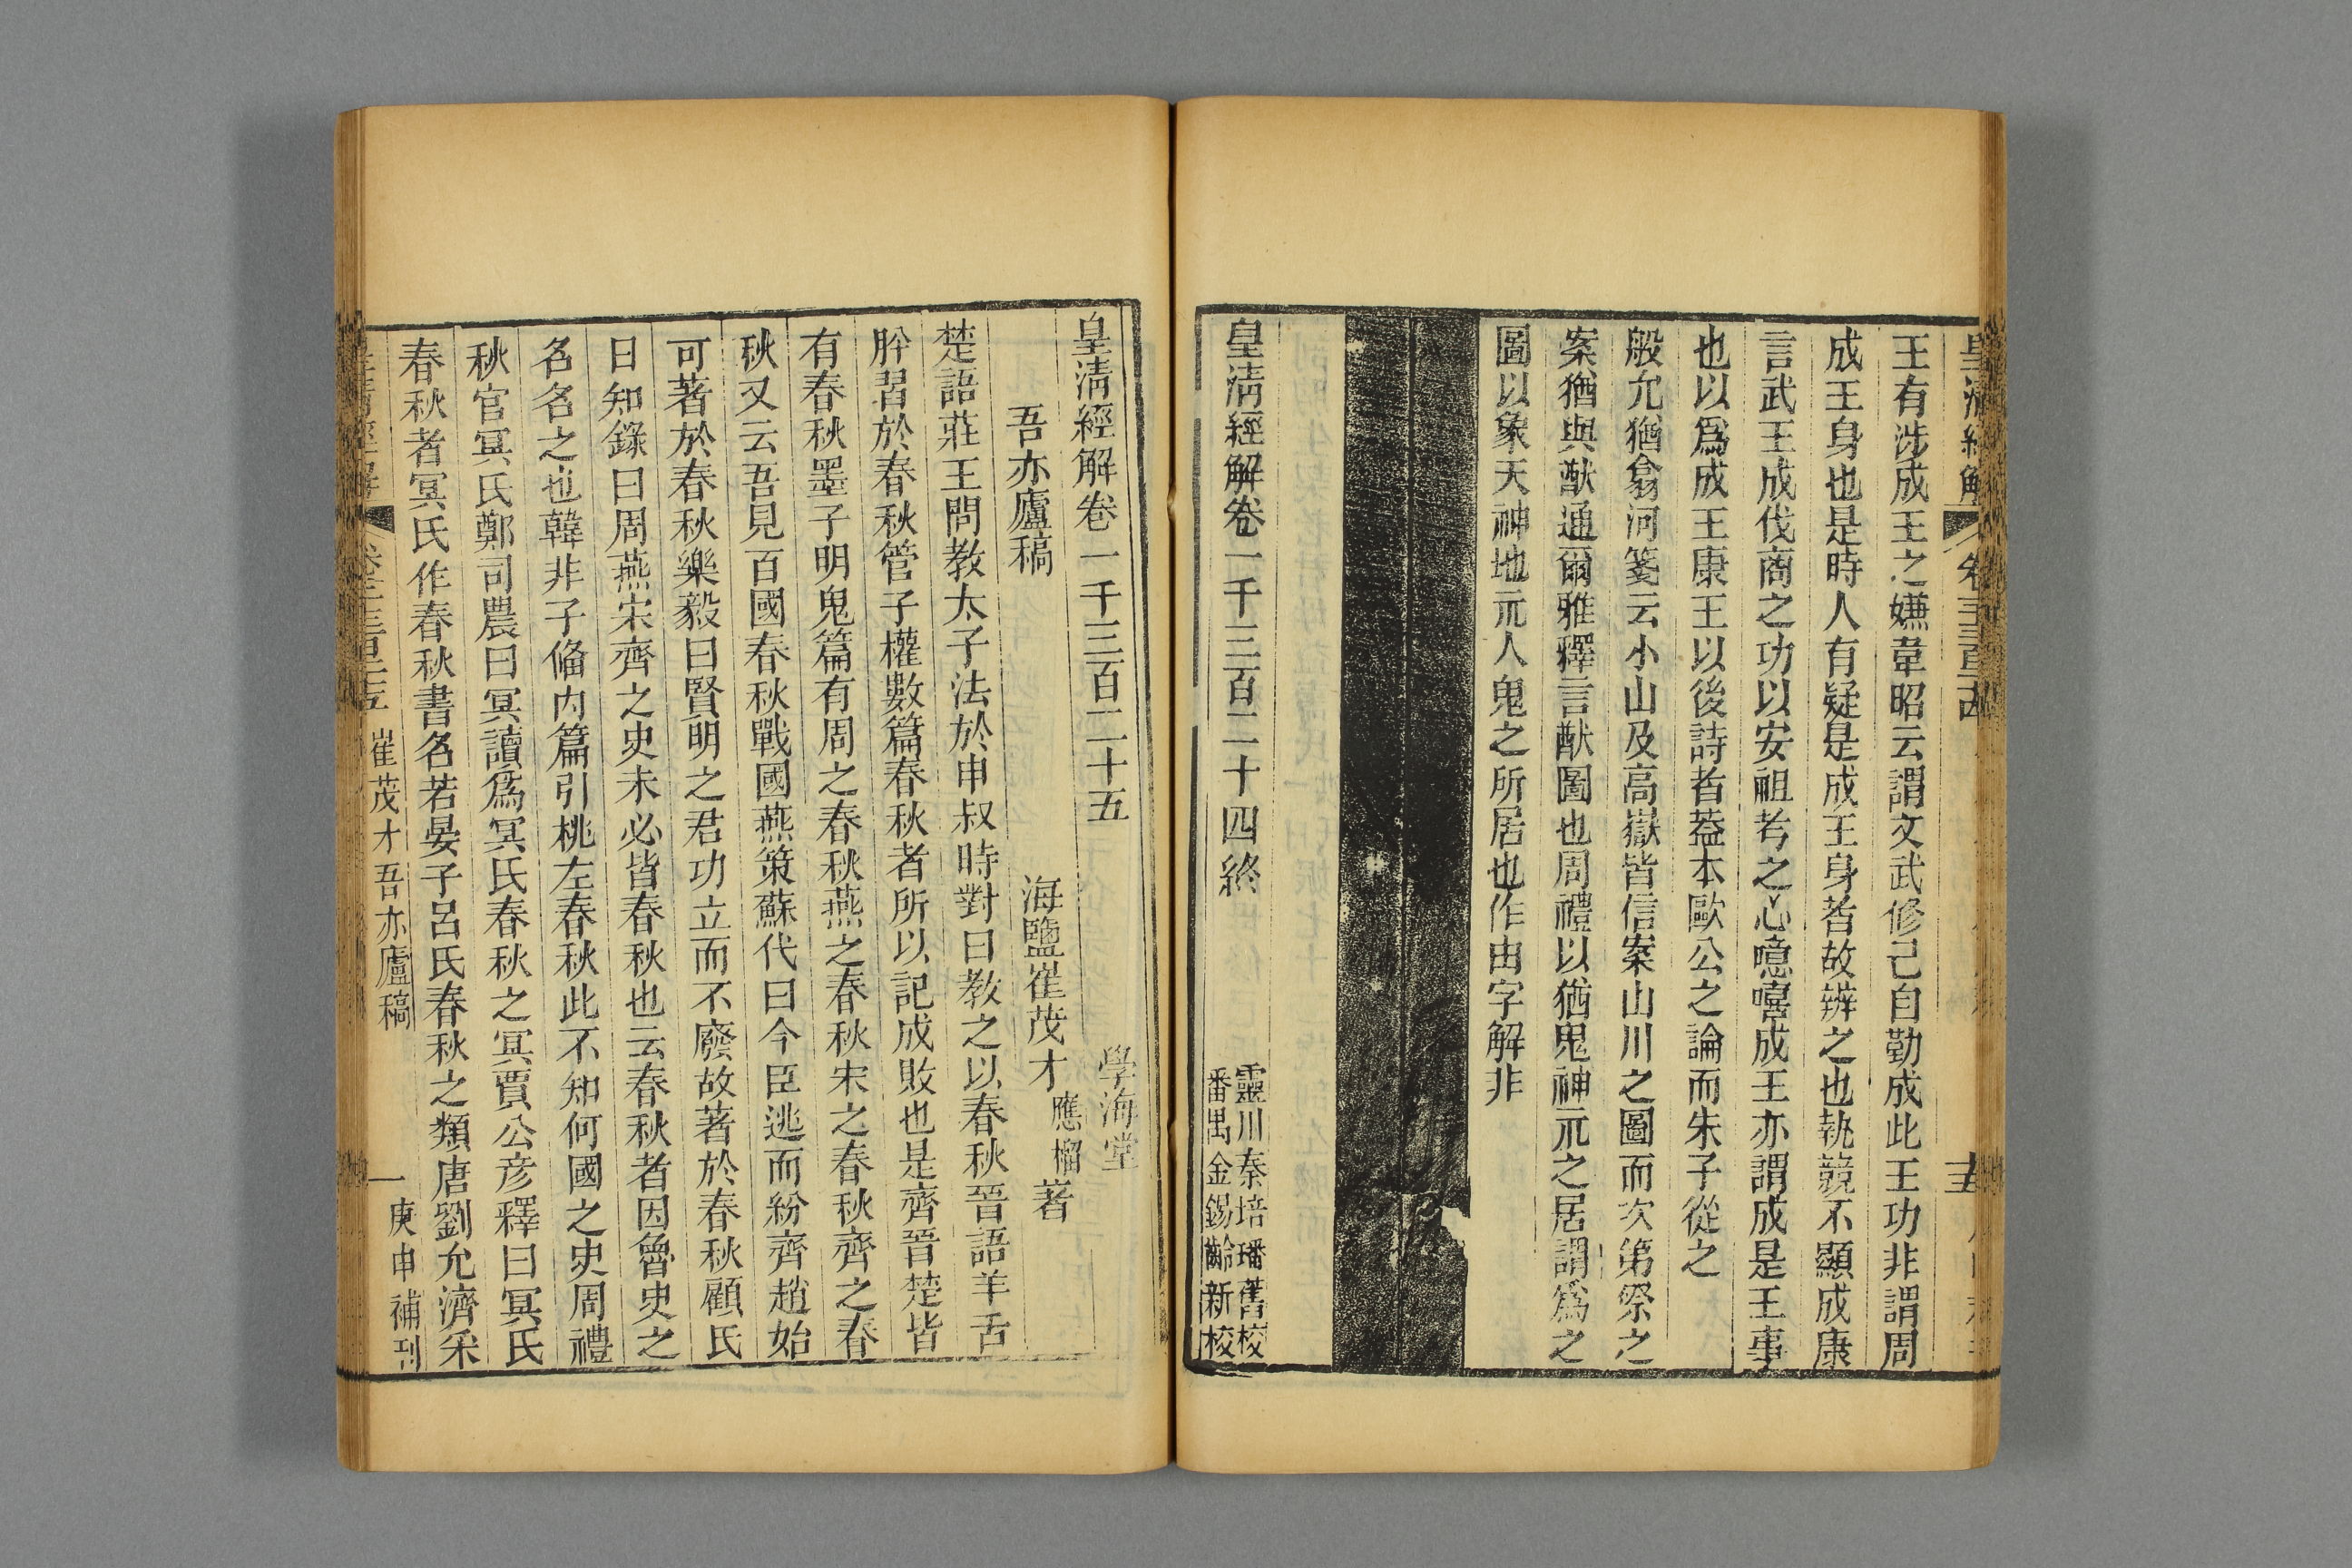 皇清經解 卷千三百二十四 十五
王有涉成王之嫌韋昭云謂文武修己自勤成此王功非謂周
成王身也是時人有疑是成王身者故辨之也執競不顯成康
言武王成伐商之功以安祖考之心噫嘻成王亦謂成是王事
也以爲成王康王以後詩者葢本歐公之論而朱子從之
般允猶翕河箋云小山及高嶽皆信案山川之圖而次第祭之
案猶與猷通爾雅釋言猷圖也周禮以猶鬼神示之居謂爲之
圖以象天神地示人鬼之所居也作由字解非
皇清經解卷一千三百二十四終
靈川秦培璠舊校
番禺金錫齡新校
皇清經解卷一千三百二十五
學海堂
吾亦廬稿
海鹽崔茂才應榴著
楚語莊王問教太子法於申叔時對曰教之以春秋晉語羊舌
肸習於春秋管子權數篇春秋者所以記成敗也是齊晉楚皆
有春秋墨子明鬼篇有周之春秋燕之春秋宋之春秋齊之春
秋又云吾見百國春秋戰國燕策蘇代曰今臣逃而紛齊趙始
可著於春秋樂毅曰賢明之君功立而不廢故著於春秋顧氏
日知錄曰周燕宋齊之史未必皆春秋也云春秋者因魯史之
名名之也韓非子備內篇引桃左春秋此不知何國之史周禮
秋官冥氏鄭司農曰冥讀爲冥氏春秋之冥賈公彦釋曰冥氏
春秋者冥氏作春秋書名若晏子呂氏春秋之類唐劉允濟采
皇清經解 卷千三百二十五 崔茂才吾亦廬稿 一 庚申補刊